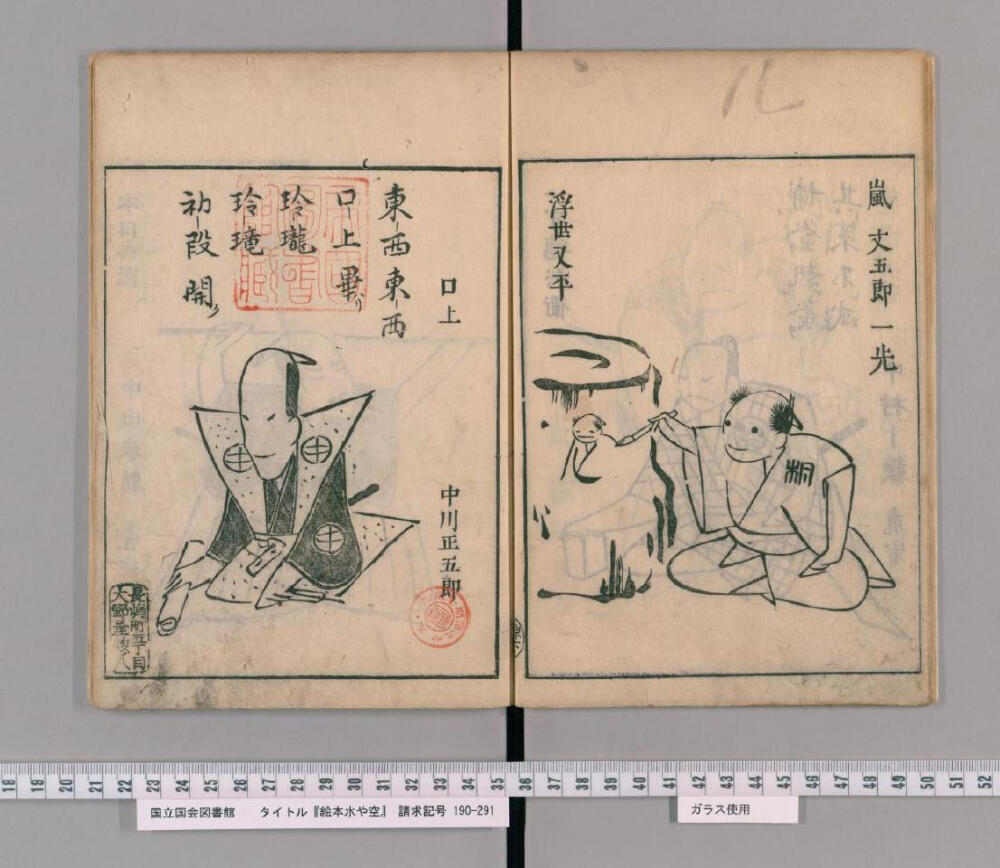 嵐 文五郎 一光
浮世又平
口上
中川正五郎
東西東西
口上畢リ
玲瓏
玲瓏
初段開ク
桐
国立国会図書館 タイトル『絵本水や空』 請求記号 190-291
ガラス使用
18 19 20 21 22 23 24 25 26 27 28 29 30 31 32 33 34 35 36 37 38 39 40 41 42 43 44 45 46 47 48 49 50 51 52